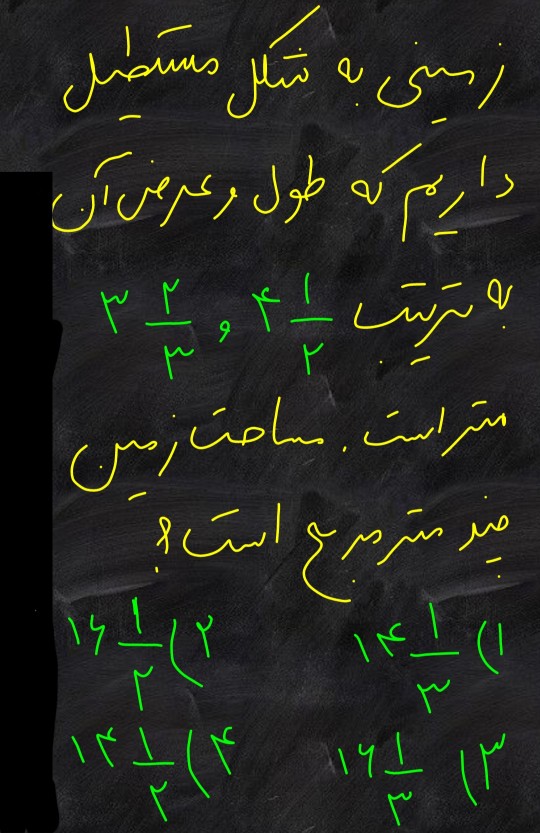 زمینی به شکل مستطیل
داریم که طول و عرض آن
به ترتیب ۴ ۱/۲ و ۳ ۲/۳
متر است. مساحت زمین
چند متر مربع است؟
۱) ۱۴ ۱/۳ ۲) ۱۶ ۱/۲
۳) ۱۶ ۱/۳ ۴) ۱۴ ۱/۲